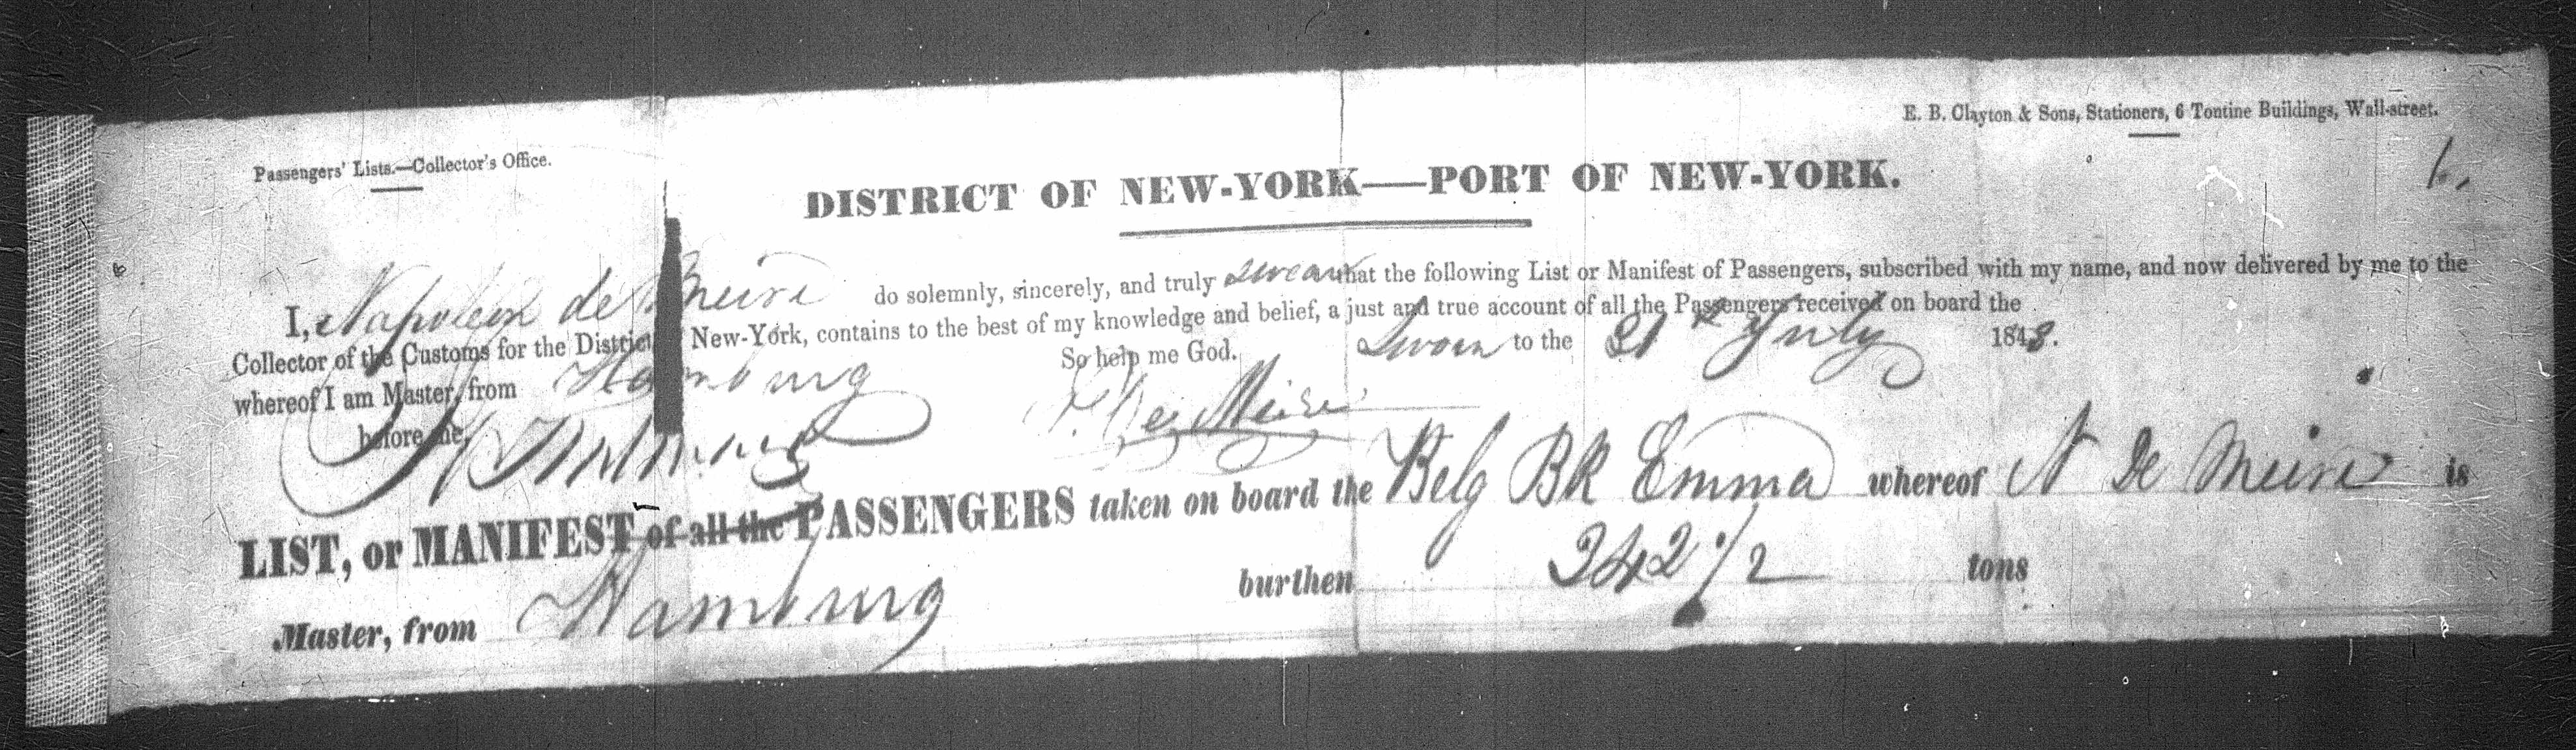 E. B. Clayton & Sons, Stationers, 6 Tontine Buildings, Wall-street.
Passengers' Lists.—Collector's Office.
DISTRICT OF NEW-YORK—PORT OF NEW-YORK.
I, Napoleon de Meire do solemnly, sincerely, and truly swear that the following List or Manifest of Passengers, subscribed with my name, and now delivered by me to the
Collector of the Customs for the District New-York, contains to the best of my knowledge and belief, a just and true account of all the Passengers received on board the
whereof I am Master, from Hamburg So help me God. Sworn to the 31 July 1843.
before me, De Meire
LIST, or MANIFEST of all the PASSENGERS taken on board the Belg BK Emma whereof N De Meire is
Master, from Hamburg burthen 242 1/2 tons